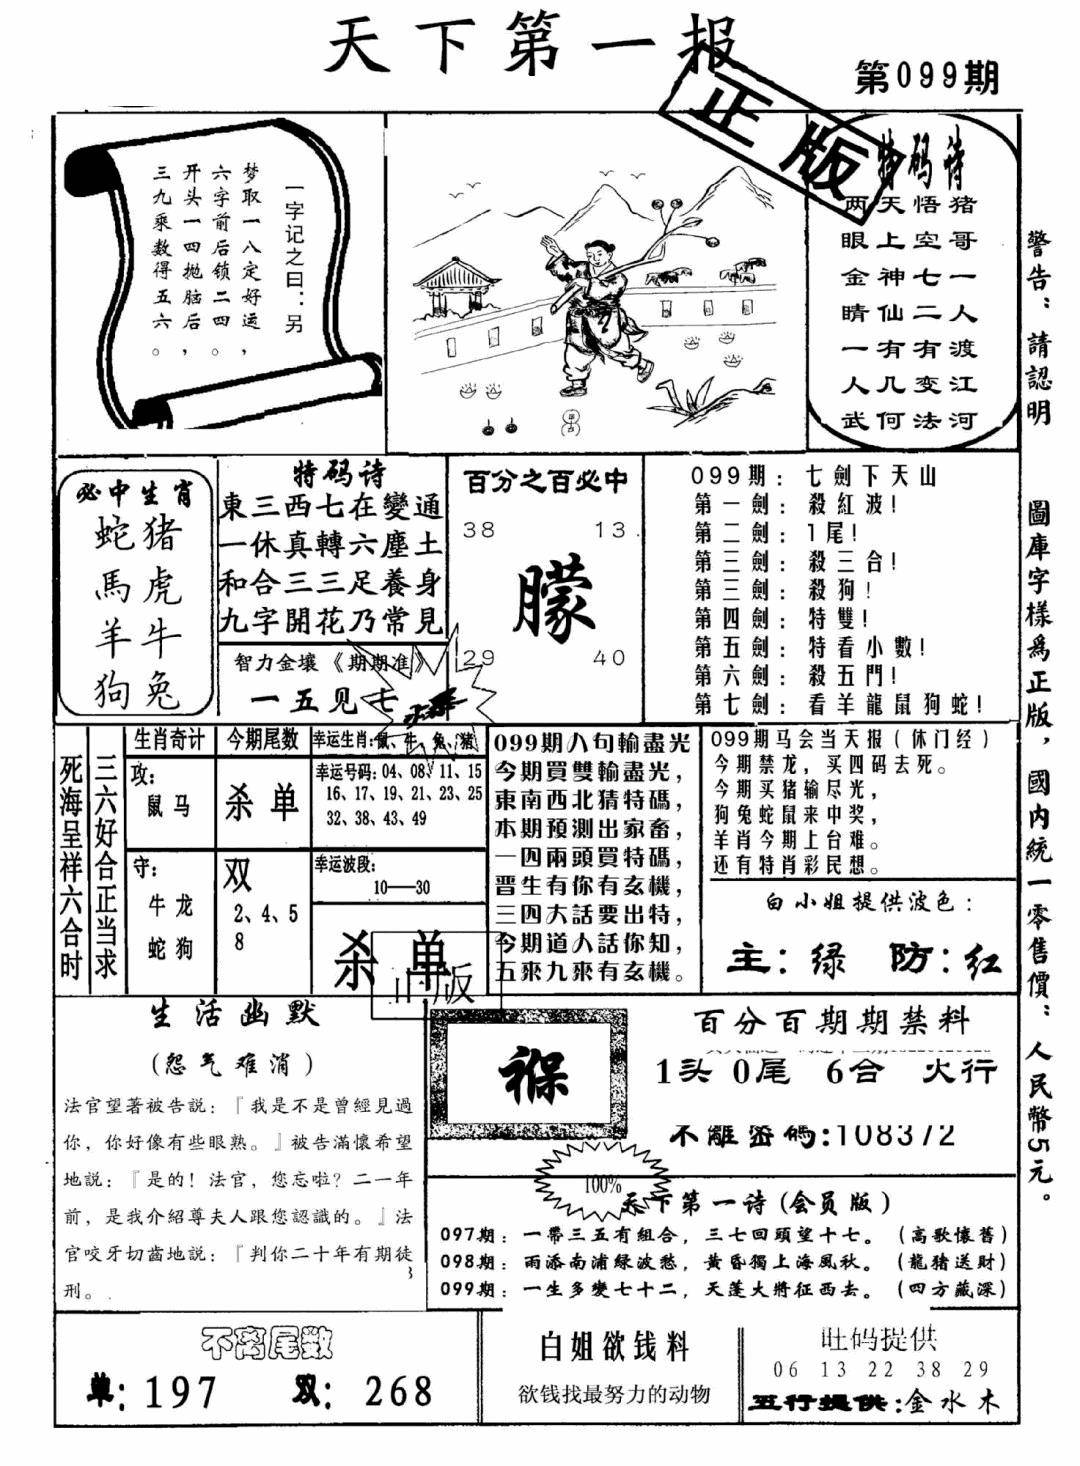 天下第一报
第099期
正版
一字记之曰：另
梦取一八定好运，
六字前后锁二四。
开头一四抛脑后，
三九乘数得五六。
特码诗
猪哥一人渡江河
悟空七二有变法
天上神仙有几何
两眼金睛一人武
警告：請認明
圖庫字樣爲正版，國内統一零售價：人民幣5元。
必中生肖
蛇猪
馬虎
羊牛
狗兔
特码诗
東三西七在變通
一休真轉六塵土
和合三三足養身
九字開花乃常見
智力金壤《期期准》
一五见七
百分之百必中
38 13
朦
29 40
099期：七劍下天山
第一劍：殺紅波！
第二劍：1尾！
第三劍：殺三合！
第三劍：殺狗！
第四劍：特雙！
第五劍：特看小數！
第六劍：殺五門！
第七劍：看羊龍鼠狗蛇！
三六好合正当求
死海呈祥六合时
生肖奇计
攻：
鼠马
守：
牛龙
蛇狗
今期尾数
杀单
双
2、4、5
8
幸运生肖：鼠、牛、兔、猪
幸运号码：04、08、11、15
16、17、19、21、23、25
32、38、43、49
幸运波段：
10——30
杀单
正版
099期八句輸盡光
今期買雙輸盡光，
東南西北猜特碼，
本期預測出家畜，
一四兩頭買特碼，
晋生有你有玄機，
三四大話要出特，
今期道人話你知，
五來九來有玄機。
099期马会当天报（休门经）
今期禁龙，买四码去死。
今期买猪输尽光，
狗兔蛇鼠来中奖，
羊肖今期上台难。
还有特肖彩民想。
白小姐提供波色：
主：绿 防：红
生活幽默
（怨气难消）
法官望著被告説：『我是不是曾經見過
你，你好像有些眼熟。』被告滿懷希望
地説：『是的！法官，您忘啦？二一年
前，是我介紹尊夫人跟您認識的。』法
官咬牙切齒地説：『判你二十年有期徒
刑。
3
褓
百分百期期禁料
1头 0尾 6合 火行
不離密碼：108372
100%
天下第一诗（会员版）
097期：一帶三五有組合，三七回頭望十七。（高歌懷舊）
098期：雨添南浦綠波愁，黃昏獨上海風秋。（龍猪送財）
099期：一生多變七十二，天蓬大將征西去。（四方藏深）
不离尾数
单：197 双：268
白姐欲钱料
欲钱找最努力的动物
旺码提供
06 13 22 38 29
五行提供：金水木